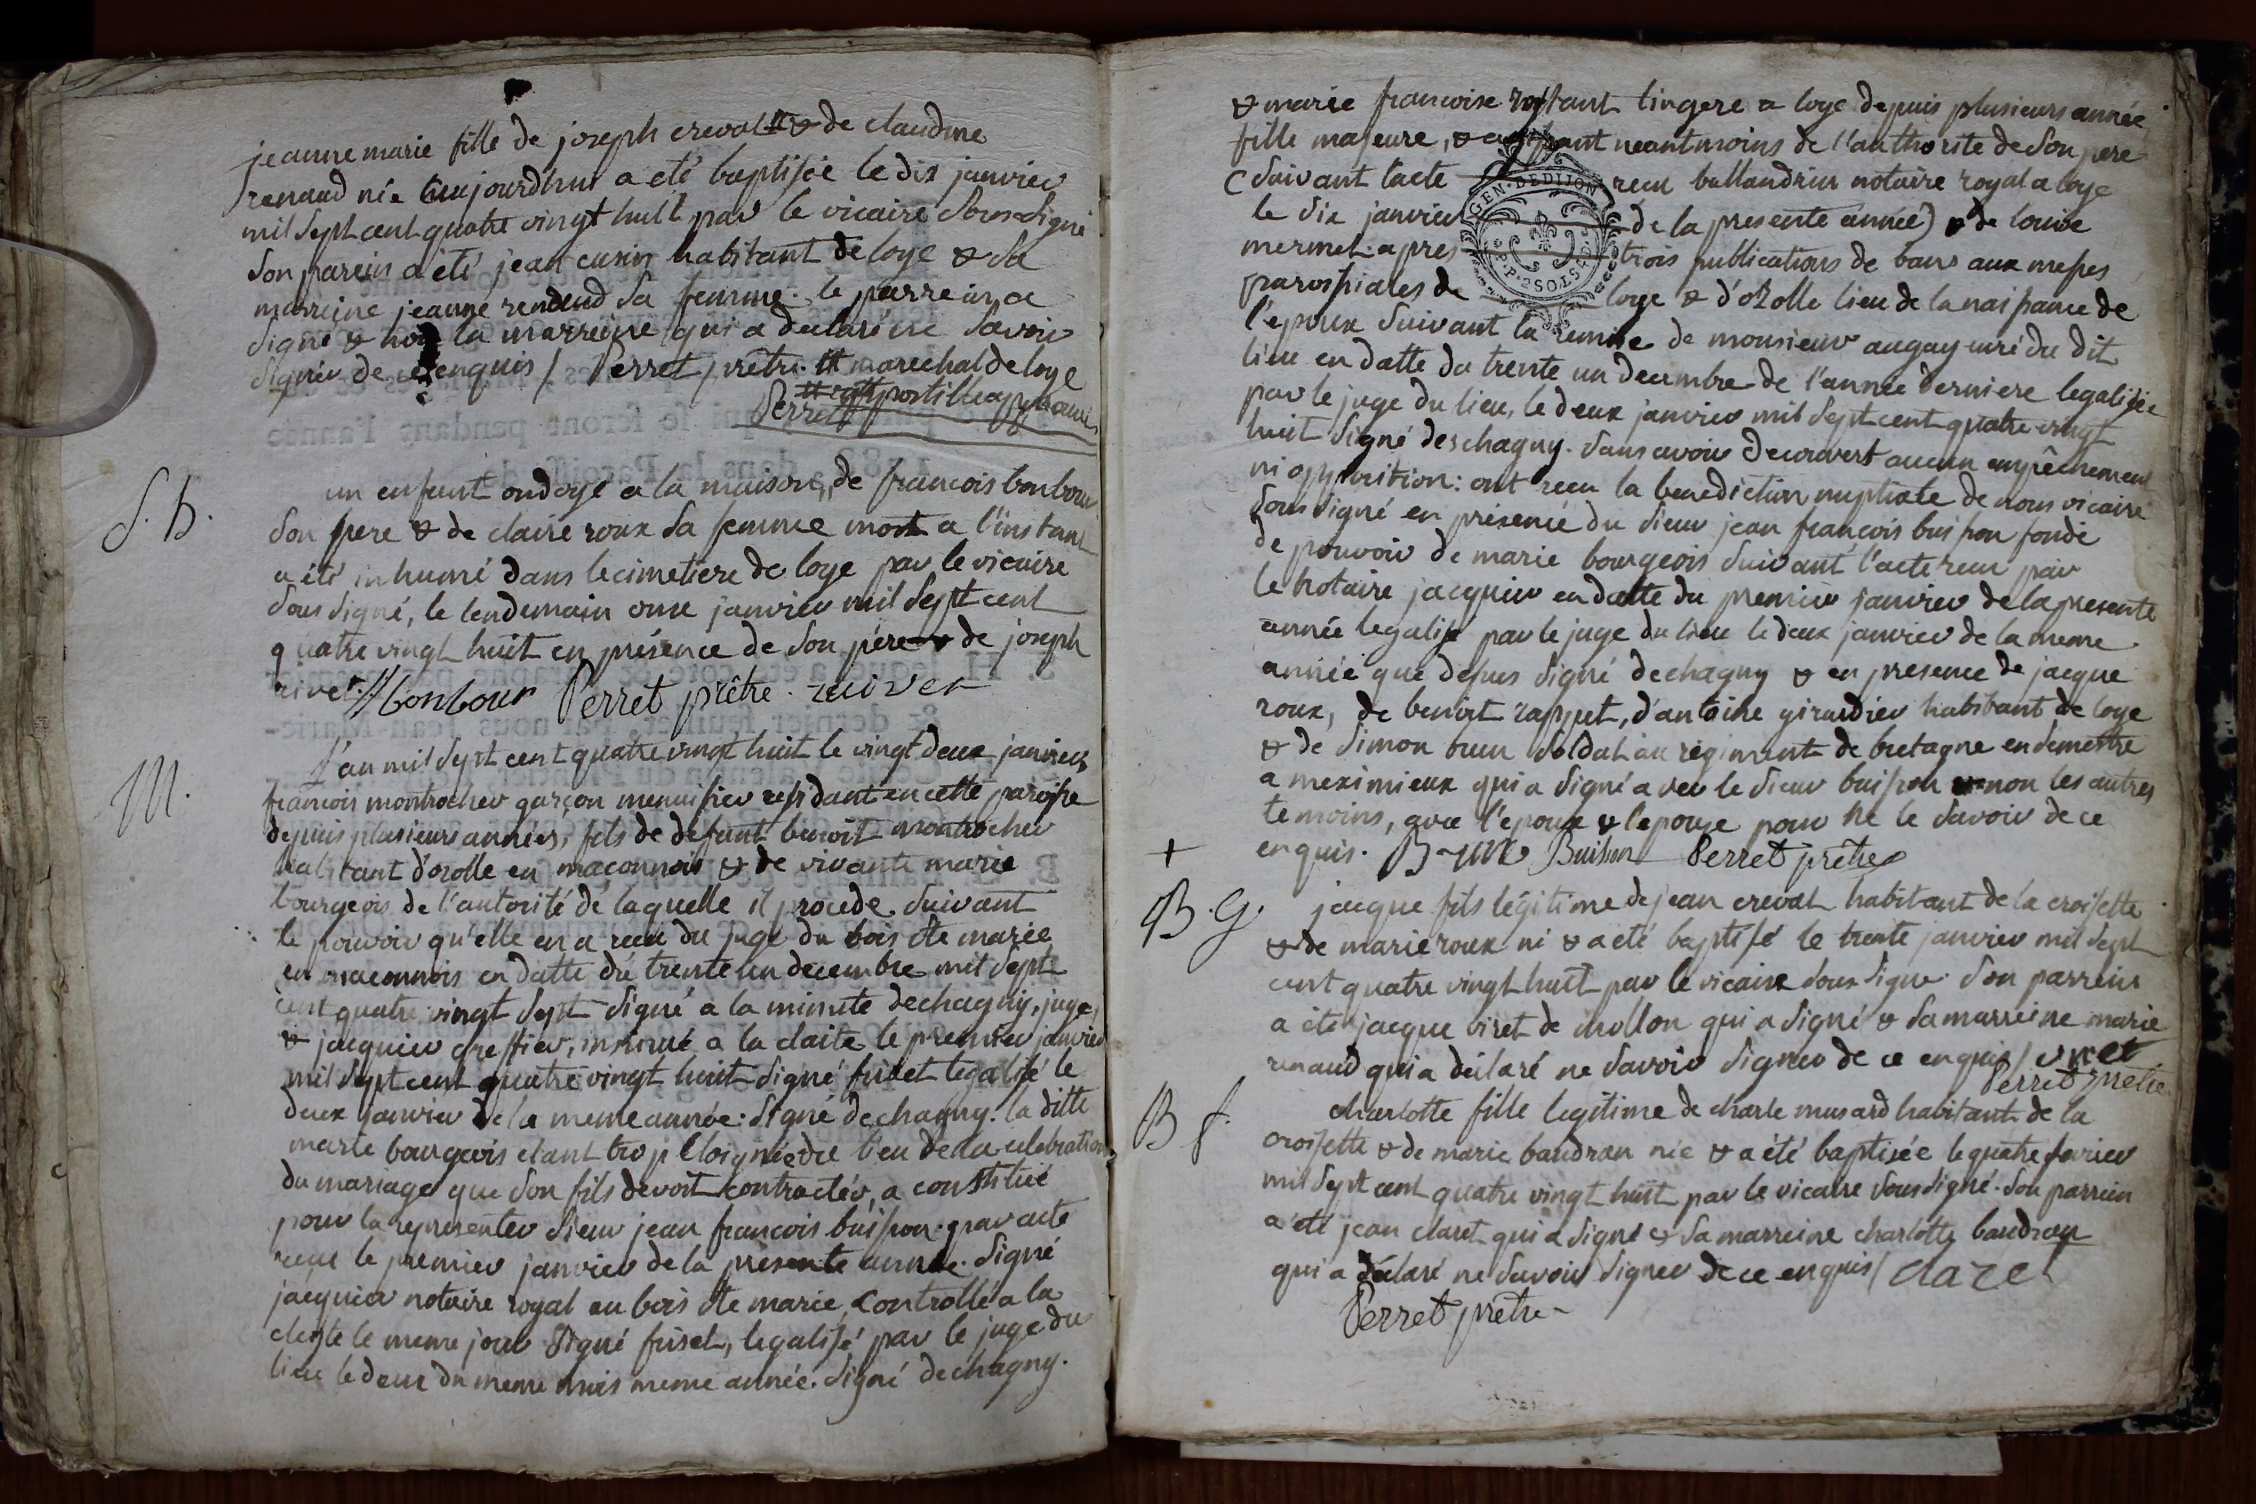 jeanne marie fille de joseph creval # & de claudine
renaud née aujourdhui a été baptisée le dix janvier
mil sept cent quatre vingt huit par le vicaire sousigné
son parein a été jean cusin habitant de loye & sa
marreine jeanne renaud sa femme. le parrein a
signé & non la marreine qui a declaré ne savoir
signer de ce enquis / Perret prêtre. # marechal de loye
# apostille approuvée
Perret
S. h.
un enfant ondoyé a la maison, de francois bonbour
son pere & de claire roux sa femme mort a l'instant
a été inhumé dans le cimetiere de loye par le vicaire
sousigné, le lendemain onze janvier mil sept cent
quatre vingt huit en présence de son père & de joseph
rivet. // bonbour Perret prêtre. rivet
M.
L'an mil sept cent quatre vingt huit le vingt deux janvier
francois montrocher garçon menuisier residant en cette paroisse
depuis plusieurs années, fils de defunt benoit montrocher
habitant d'ozolle en maçonnois & de vivante marie
bourgeois de l'autorité de laquelle il procede suivant
le pouvoir qu'elle en a receu du juge du bois ste marie
en maconnois en datte du trente un decembre mil sept
cent quatre vingt sept signé a la minute dechagny, juge,
& jacquier greffier, insinué a la claite le premier janvier
mil sept cent quatre vingt huit signé fuset legalisé le
deux janvier de la meme année. signé dechagny. la ditte
marie bourgeois etant trop eloignée du lieu de la celebration
du mariage que son fils devoit contracter, a constitué
pour la representer sieur jean francois buisson. par acte
receu le premier janvier de la presente année. signé
jacquier notaire royal au bois ste marie, controllé a la
claite le meme jour signé fuset, legalisé par le juge du
lieu le deux du meme mois meme année. signé dechagny.
& marie francoise rostant lingere a loye depuis plusieurs année
fille majeure, & agissant neantmoins de l'authorité de son pere
(suivant l'acte receu ballandrin notaire royal a loye
le six janvier de la presente année) & de louise
GEN. DE DIJON
mermet. apres trois publications de bans aux messes
parossiales de loye & d'ozolle lieu de la naissance de
l'epoux suivant la remise de monsieur augay curé du dit
lieu en datte du trente un decembre de l'année derniere legalisée
par le juge du lieu, le deux janvier mil sept cent quatre vingt
huit signé deschagny. sans avoir decouvert aucun empêchement
ni opposition: ont receu la benediction nuptiale de nous vicaire
sousigné en présence du sieur jean françois buisson fondé
de pouvoir de marie bourgeois suivant l'acte receu par
le notaire jacquier en datte du premier janvier de la presente
année legalisé par le juge du lieu le deux janvier de la meme
année que dessus signé dechagny & en presence de jacque
roux, de benoit rappet, d'antoine girardier habitant de loye
& de simon brun soldat au regiment de bretagne en semestre
a meximieux qui a signé avec le sieur buisson & non les autres
temoins, avec l'epoux & l'epouse pour ne le savoir de ce
+ enquis. Brun Buisson Perret prêtre
B. G.
jacque fils légitime de jean creval habitant de la croisette
& de marie roux né & a été baptisé le trente janvier mil sept
cent quatre vingt huit par le vicaire sousigné. son parrein
a été jacque viret de mollon qui a signé & sa marreine marie
renaud qui a déclaré ne savoir signer de ce enquis / viret
Perret prêtre
B f.
charlotte fille legitime de charle musard habitant de la
croisette & de marie baudran née & a été baptisée le quatre fevrier
mil sept cent quatre vingt huit par le vicaire sousigné. son parrein
a été jean claret qui a signé & sa marreine charlotte baudran
qui a déclaré ne savoir signer de ce enquis / claret
Perret prêtre